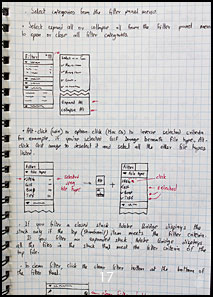 Select categories from the filter panel menu.
• Select expand all or collapse all from the filter panel menu
to open or clear all filter categories.
Filter
Expand All
Collapse All
• Alt-click (win) or option click (Mac OS) to inverse selected criteria
for example if you've selected Gif Image beneath file type, Alt-
click Gif image to deselect it and select all the other file types
listed.
Filter
File Type
selected
file type
Alt
Filter
File Type
click
selected
• If you filter a closed stack Adobe Bridge displays the
stack only if the top (thumbnail) item meets the filter criteria.
If you filter an expanded stack Adobe Bridge displays
all the files in the stack that meet the filter criteria of the
top file.
• To clear filter click the clear filter button at the bottom of
the filter panel.
17